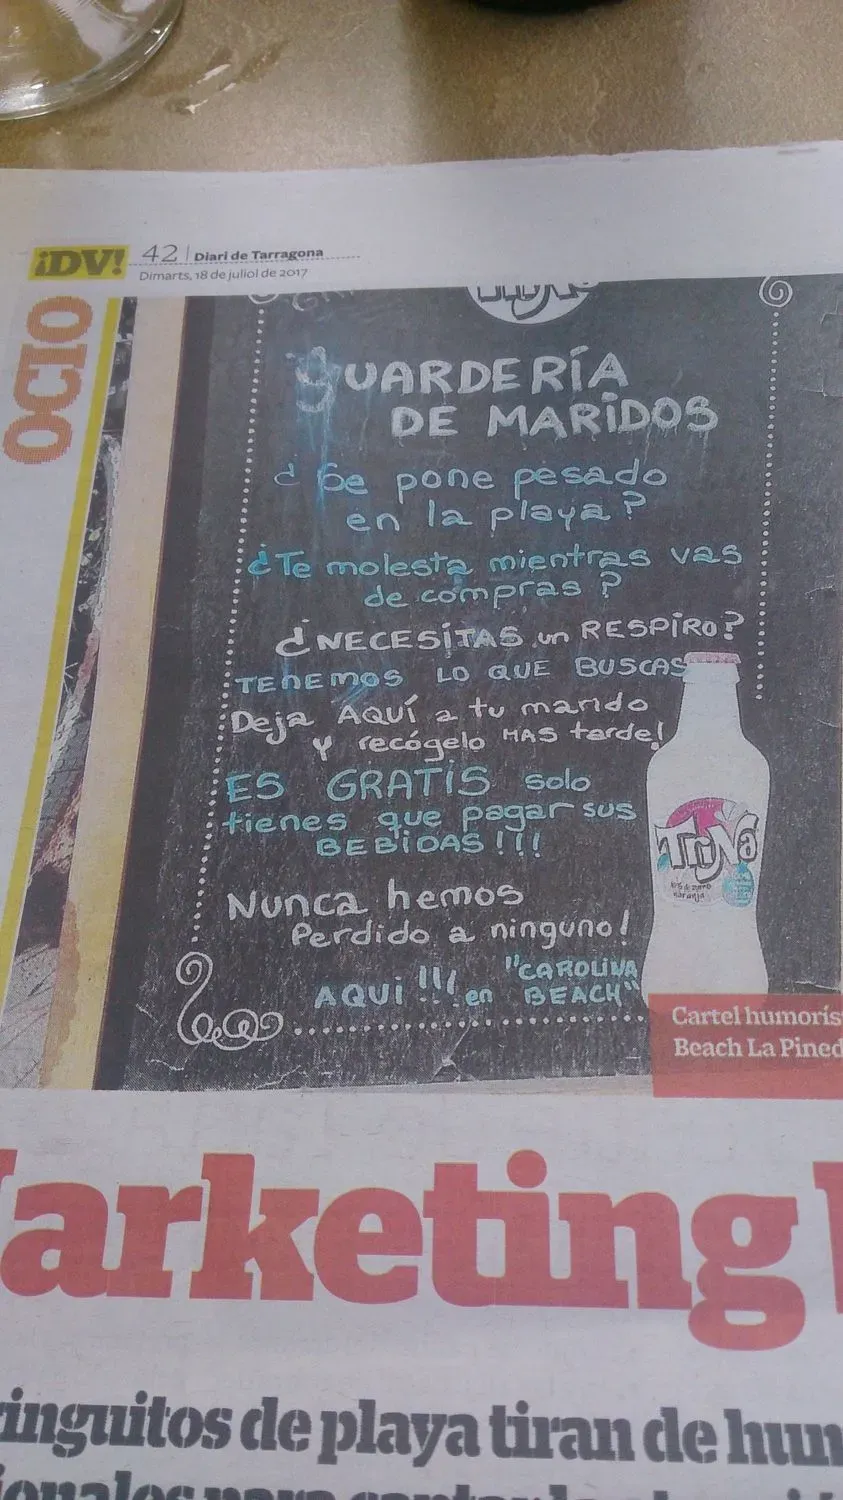 ¡DV!
42 | Diari de Tarragona
Dimarts, 18 de juliol de 2017
OCIO
GUARDERÍA
DE MARIDOS
¿Se pone pesado
en la playa?
¿Te molesta mientras vas
de compras?
¿NECESITAS un RESPIRO?
TENEMOS LO QUE BUSCAS
Deja AQUÍ a tu marido
y recógelo MAS tarde!
ES GRATIS solo
tienes que pagar sus
BEBIDAS!!!
Nunca hemos
Perdido a ninguno!
AQUI!!! en "CAROLINA
BEACH"
TriNa
naranja
100%
Cartel humorís
Beach La Pined
arketing
inguitos de playa tiran de hum